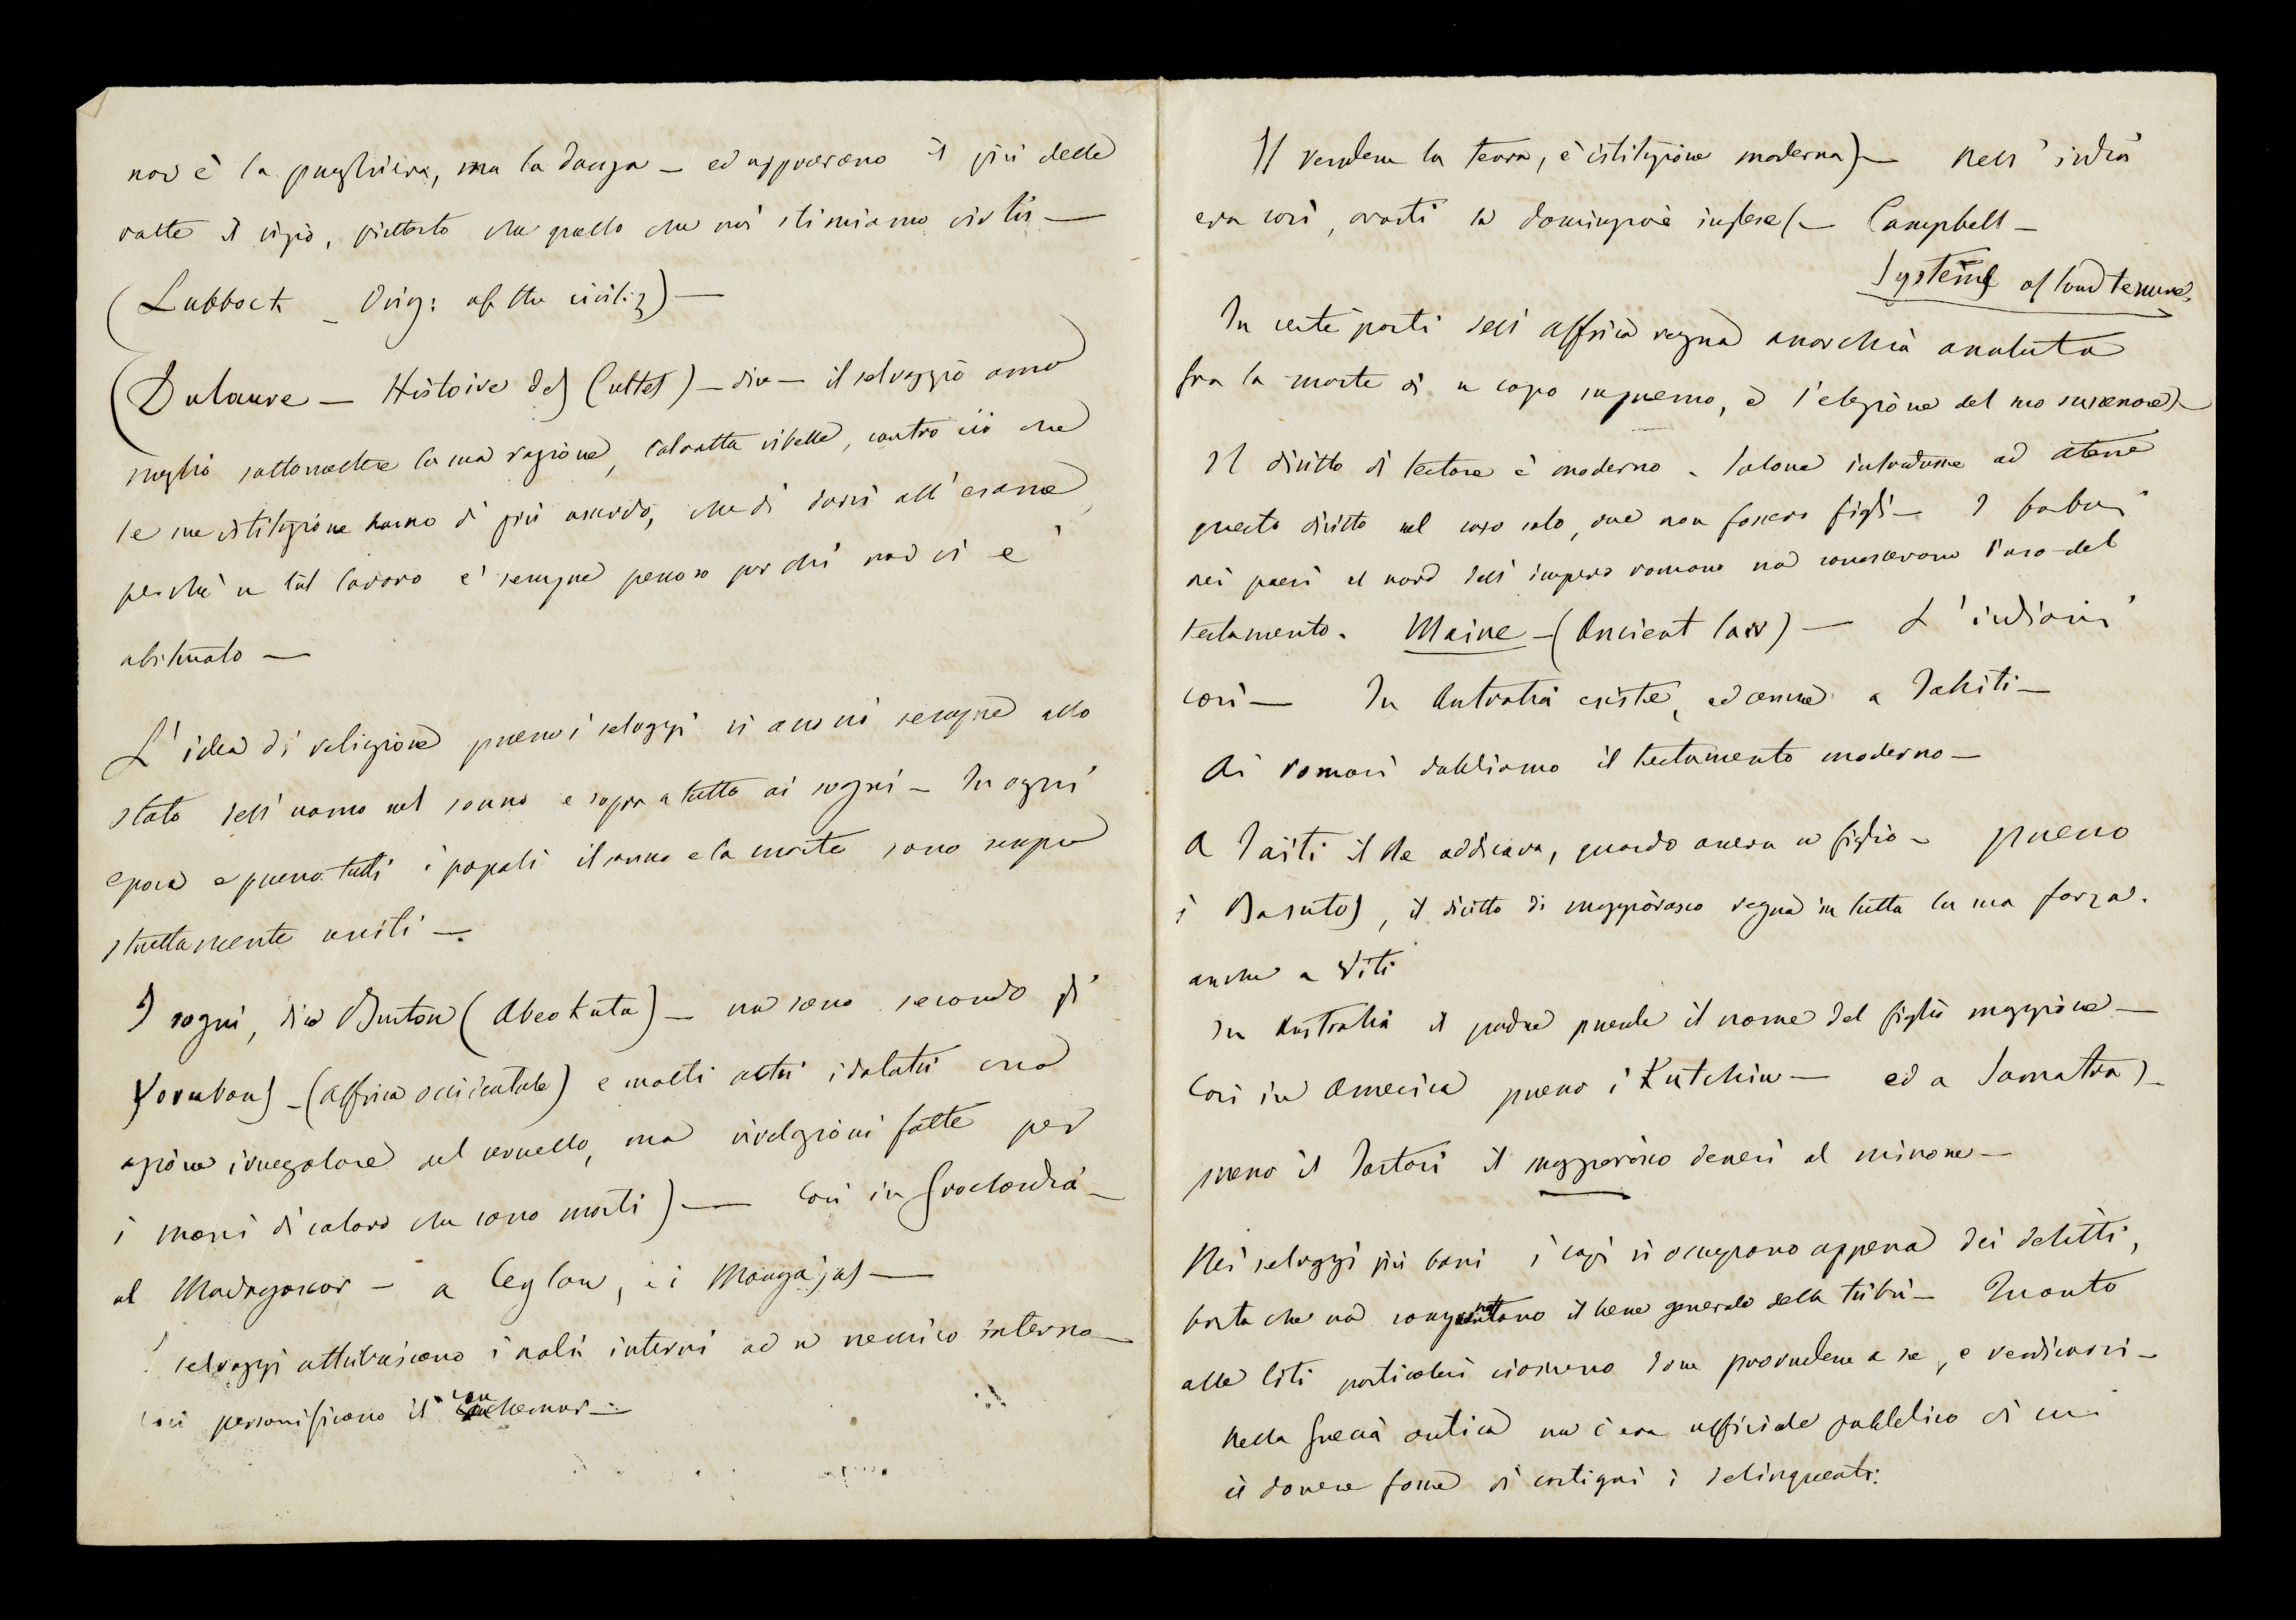 non è la preghiera, ma la danza – ed approvano il più delle
volte il vizio, piuttosto che quello che noi stimiamo virtù —
(Lubbock – Orig: of the civiliz) —
(Dulaure – Histoire des Cultes) – dice – il selvaggio ama
meglio sottomettere la sua ragione, talvolta ribelle, contro ciò che
le sue istituzione hanno di più assurdo, che di darsi all'esame
perchè un tal lavoro è sempre penoso per chi non vi è
abituato —
L'idea di religione presso i selvaggi si associa sempre allo
stato dell'uomo nel sonno e sopra a tutto ai sogni – In ogni
epoca e presso tutti i popoli il sonno e la morte sono sempre
strettamente uniti —.
I sogni, dice Burton (Abeokuta) – non sono secondo gli
Yorubans – (Affrica occidentale) e molti altri idolatri una
azione irregolare del cervello, ma rivelazioni fatte per
i mani di coloro che sono morti) — Così in Groelandia –
al Madagascar – a Ceylan, e i Manganjas —
I selvaggi attribuiscono i mali interni ad un nemico interno —
così personificano il cauchemar —
Il vendere la terra, è istituzione moderna) — Nell'India
era così, avanti la dominazione inglese (– Campbell –
Systems of land tenure,
In certe parti dell'Affrica regna anarchia assoluta
fra la morte di un capo supremo, e l'elezione del suo successore) –
Il diritto di testare è moderno – Solone introdusse ad Atene
questo diritto nel caso solo, ove non fossero figli – I barbari
nei paesi al nord dell'impero romano non conoscevano l'uso del
testamento. Maine – (Ancient law) — L'indiani
così — In Australia esiste, ed anche a Tahiti –
Ai romani dobbiamo il testamento moderno –
A Taiti il Re addicava, quando aveva un figlio – presso
i Basutos, il diritto di maggiorasco regna in tutta la sua forza.
anche a Viti
In Australia il padre prende il nome del figlio maggiore —
Così in America presso i Kutchin — ed a Sumatra) –
presso il Tartari il maggiorasco deveri al minore —
Nei selvaggi più bassi i capi si occupano appena dei delitti,
basta che non compromettano il bene generale della tribù – Quanto
alle liti particolari ciascuno deve provvedere a se, e vendicarsi –
Nella Grecia antica non c'era ufficiale pubblico di cui
il dovere fosse di castigare i delinquenti: